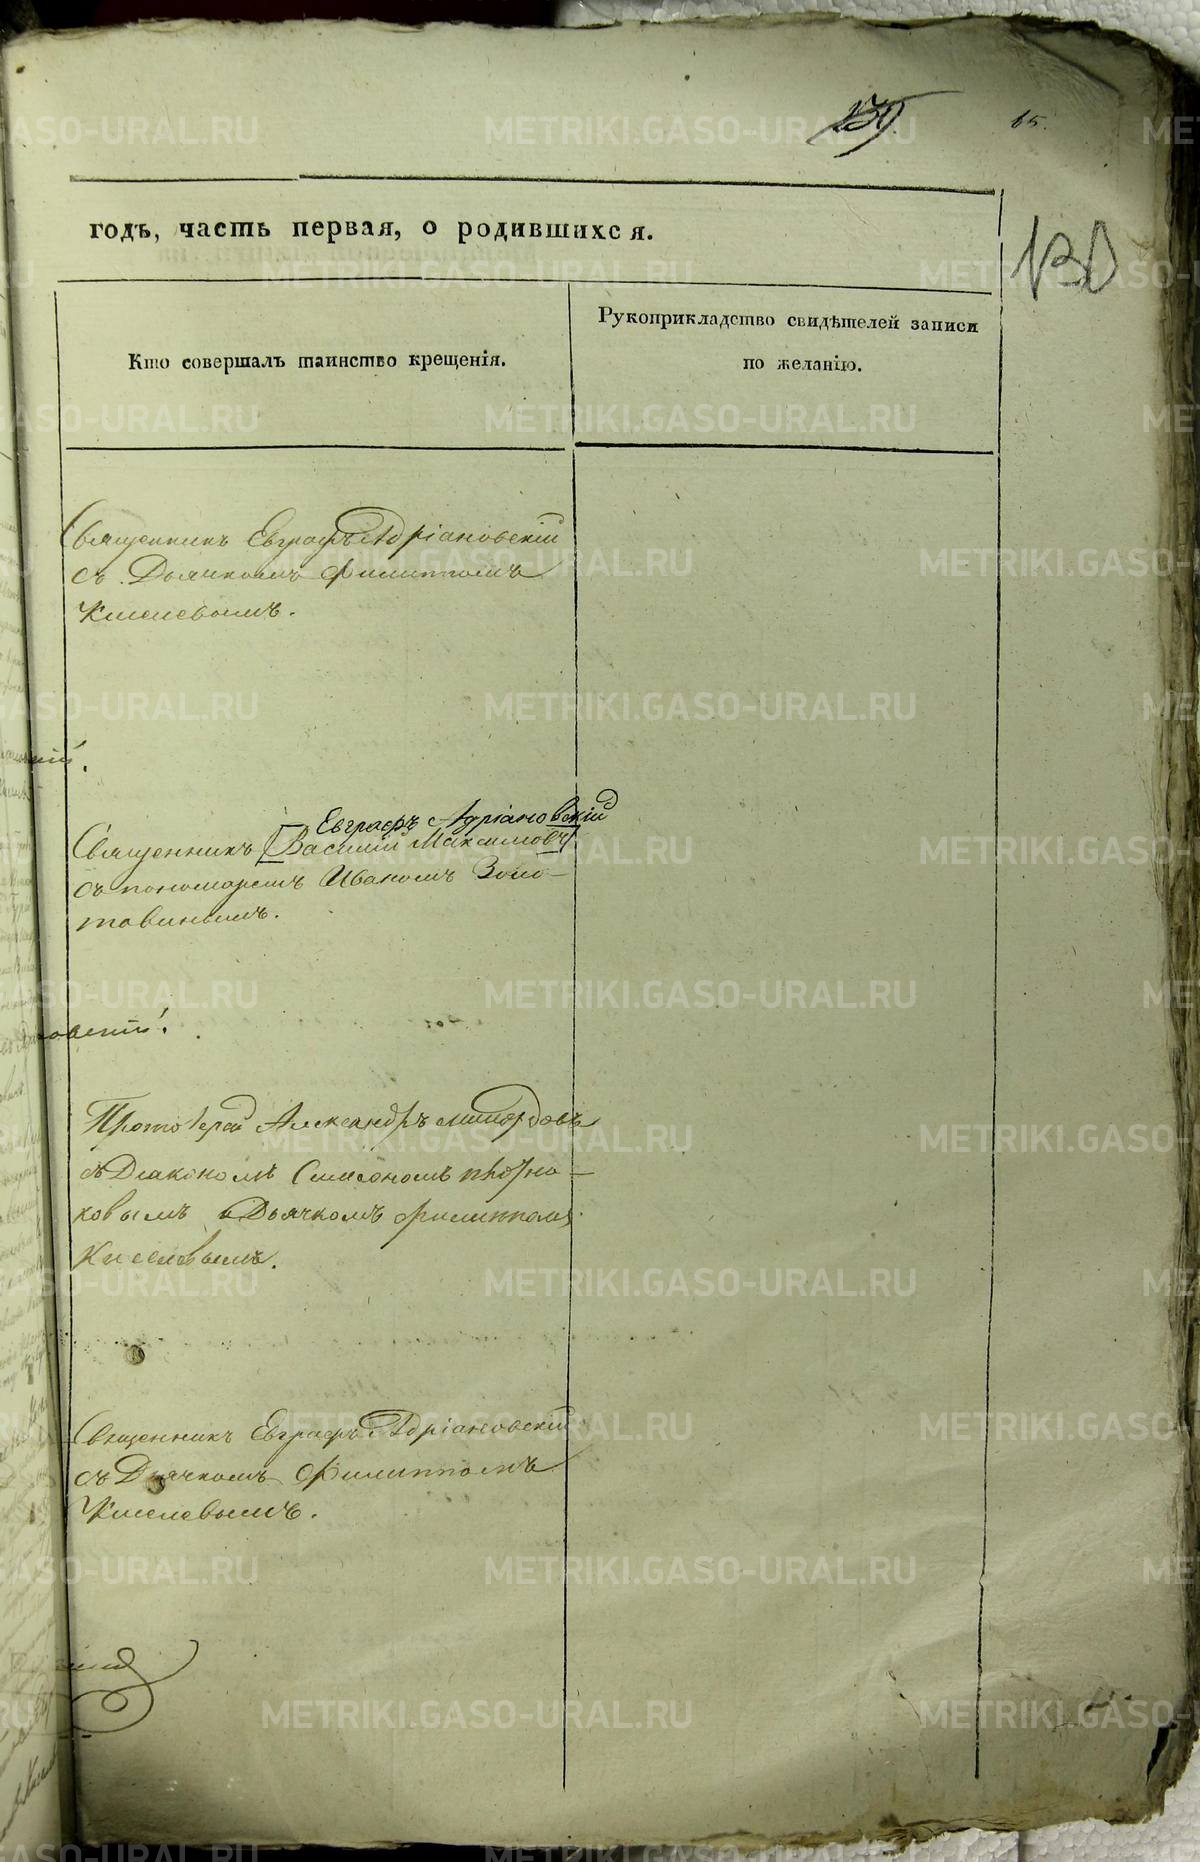 65.
130
годъ, часть первая, о родившихся.
Кто совершалъ таинство крещенія.
Рукоприкладство свидѣтелей записи
по желанію.
Священникъ Евграфъ Адріановскій
съ Дьячкомъ Филиппомъ
Киселевымъ.
Евграфъ Адріановскій
Священникъ [Василій Максимовъ]
съ пономаремъ Иваномъ Золо-
товинымъ.
Протоіерей Александръ
съ Діакономъ Симеономъ
ковымъ и Дьячкомъ Филиппомъ
Киселевымъ.
Священникъ Евграфъ Адріановскій
съ Дьячкомъ Филиппомъ
Киселевымъ.
METRIKI.GASO-URAL.RU